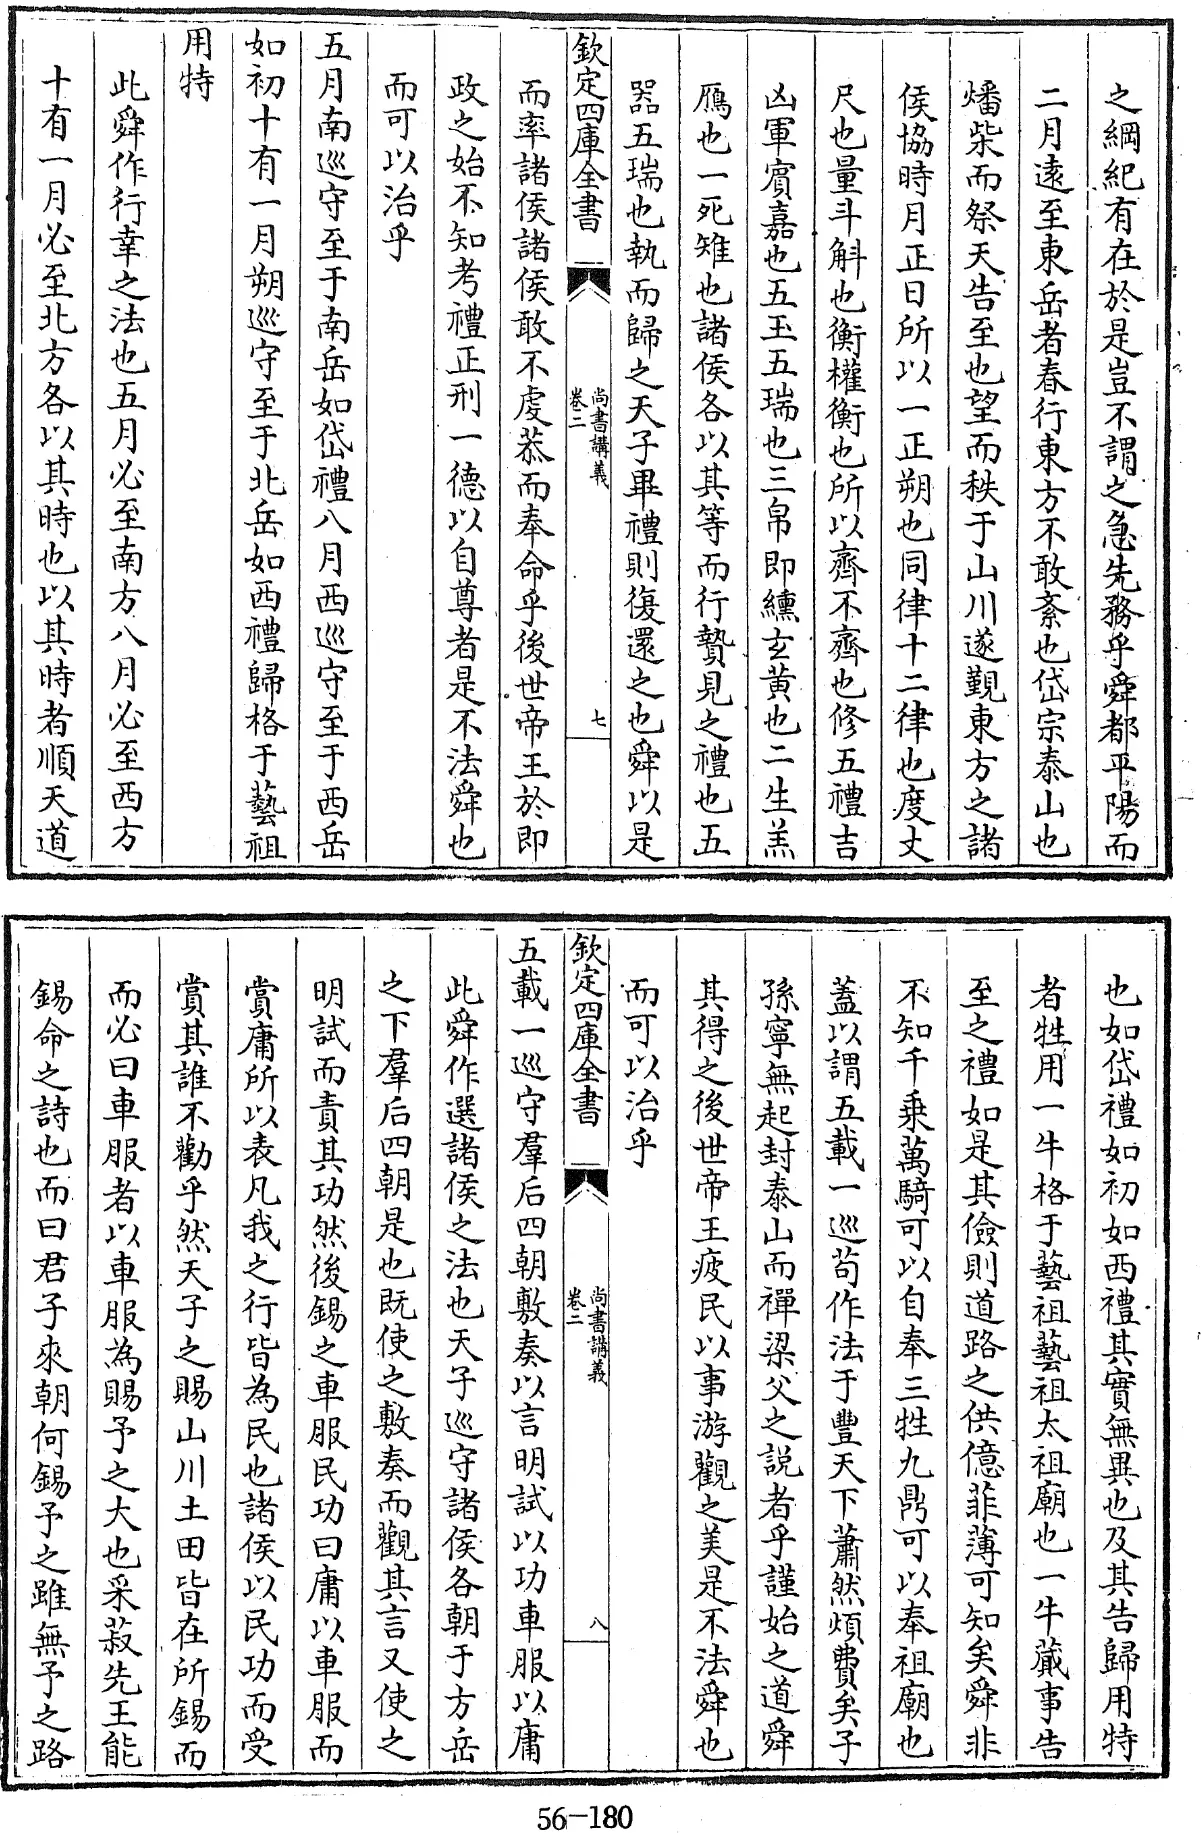 之綱紀有在於是豈不謂之急先務乎舜都平陽而
二月遠至東岳者春行東方不敢紊也岱宗泰山也
燔柴而祭天告至也望而秩于山川遂覲東方之諸
侯協時月正日所以一正朔也同律十二律也度丈
尺也量斗斛也衡權衡也所以齊不齊也修五禮吉
凶軍賓嘉也五玉五瑞也三帛即纁玄黄也二生羔
鴈也一死雉也諸侯各以其等而行贄見之禮也五
器五瑞也執而歸之天子畢禮則復還之也舜以是
欽定四庫全書
尚書講義
卷二
七
而率諸侯諸侯敢不虔恭而奉命乎後世帝王於即
政之始不知考禮正刑一德以自尊者是不法舜也
而可以治乎
五月南巡守至于南岳如岱禮八月西巡守至于西岳
如初十有一月朔巡守至于北岳如西禮歸格于藝祖
用特
此舜作行幸之法也五月必至南方八月必至西方
十有一月必至北方各以其時也以其時者順天道
也如岱禮如初如西禮其實無異也及其告歸用特
者牲用一牛格于藝祖藝祖太祖廟也一牛蕆事告
至之禮如是其儉則道路之供億菲薄可知矣舜非
不知千乘萬騎可以自奉三牲九鼎可以奉祖廟也
蓋以謂五載一巡苟作法于豐天下蕭然煩費矣子
孫寧無起封泰山而禪梁父之説者乎謹始之道舜
其得之後世帝王疲民以事游觀之美是不法舜也
而可以治乎
欽定四庫全書
尚書講義
卷二
八
五載一巡守羣后四朝敷奏以言明試以功車服以庸
此舜作選諸侯之法也天子巡守諸侯各朝于方岳
之下羣后四朝是也既使之敷奏而觀其言又使之
明試而責其功然後錫之車服民功曰庸以車服而
賞庸所以表凡我之行皆為民也諸侯以民功而受
賞其誰不勸乎然天子之賜山川土田皆在所錫而
而必曰車服者以車服為賜予之大也采菽先王能
錫命之詩也而曰君子來朝何錫予之雖無予之路
56-180